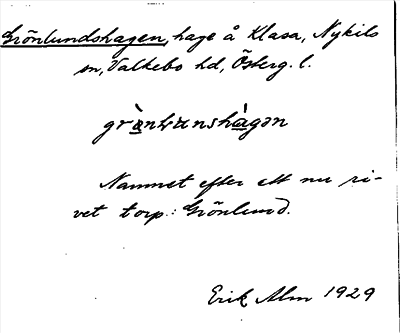 Grönlundshagen, hage å Klasa, Nykils
sn, Valkebo hd, Österg. l.
Namnet efter ett nu ri-
vet torp: Grönlund.
Erik Alm 1929